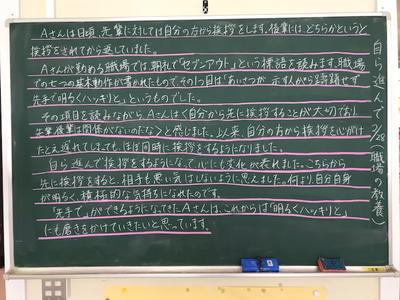 自ら進んで 3/28(職場の教養)
Aさんは日頃、先輩に対しては自分の方から挨拶をします。後輩には、どちらかというと
挨拶をされてから返していました。
Aさんが勤める職場では朝礼で「セブンアクト」という標語を読みます。職場
での七つの基本動作が書かれたもので、その1つ目は「あいさつが 示す人がら 躊躇せず
先手で明るくハッキリと」というものでした。
その項目を読みながらAさんは<自分から先に挨拶することが大切であり、
先輩後輩は関係がないのだな>と感じました。以来、自分の方から挨拶を心がけ
たとえ遅れてしまっても、ほぼ同時に挨拶をするようになりました。
自ら進んで挨拶をするようになって、心にも変化が表れました。こちらから
先に挨拶をすると、相手も悪い気はしないように思えました。何より、自分自身
が明るく、積極的な気持ちになれたのです。
「先手で」ができるようになってきたAさんは、これからは「明るくハッキリと」
にも磨きをかけていきたいと思っています。